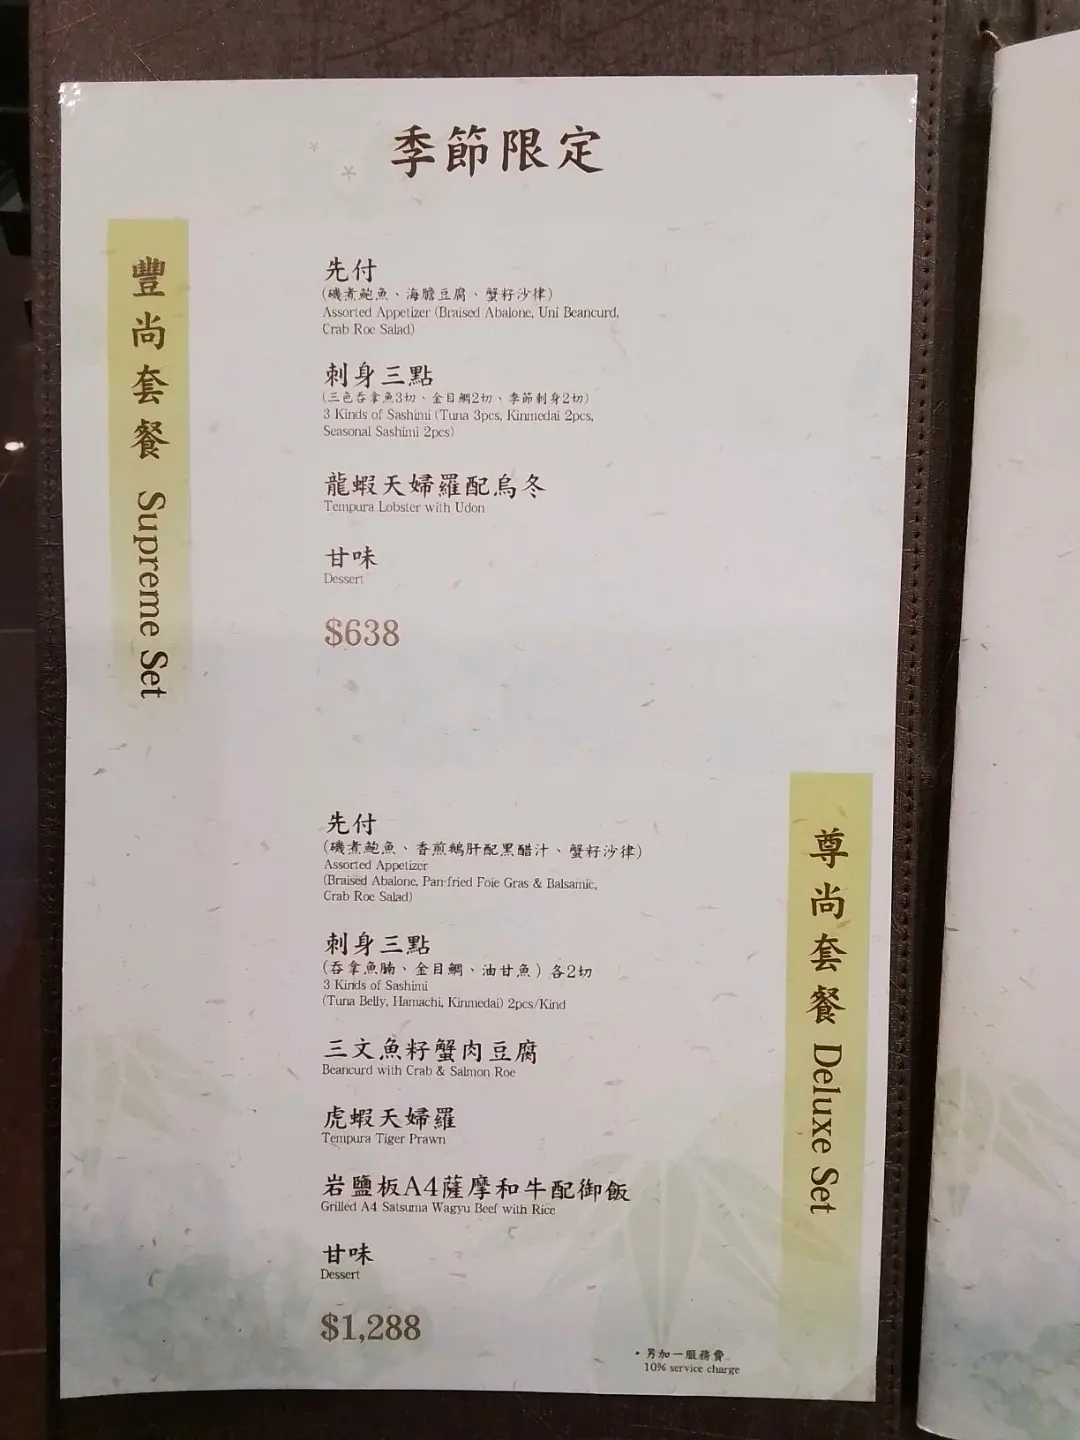 季節限定
豐尚套餐 Supreme Set
先付
(磯煮鮑魚、海膽豆腐、蟹籽沙律)
Assorted Appetizer (Braised Abalone, Uni Beancurd,
Crab Roe Salad)
刺身三點
(三色吞拿魚3切、金目鯛2切、季節刺身2切)
3 Kinds of Sashimi (Tuna 3pcs, Kinmedai 2pcs,
Seasonal Sashimi 2pcs)
龍蝦天婦羅配烏冬
Tempura Lobster with Udon
甘味
Dessert
$638
尊尚套餐 Deluxe Set
先付
(磯煮鮑魚、香煎鵝肝配黑醋汁、蟹籽沙律)
Assorted Appetizer
(Braised Abalone, Pan-fried Foie Gras & Balsamic,
Crab Roe Salad)
刺身三點
(吞拿魚腩、金目鯛、油甘魚) 各2切
3 Kinds of Sashimi
(Tuna Belly, Hamachi, Kinmedai) 2pcs/Kind
三文魚籽蟹肉豆腐
Beancurd with Crab & Salmon Roe
虎蝦天婦羅
Tempura Tiger Prawn
岩鹽板A4薩摩和牛配御飯
Grilled A4 Satsuma Wagyu Beef with Rice
甘味
Dessert
$1,288
• 另加一服務費
10% service charge